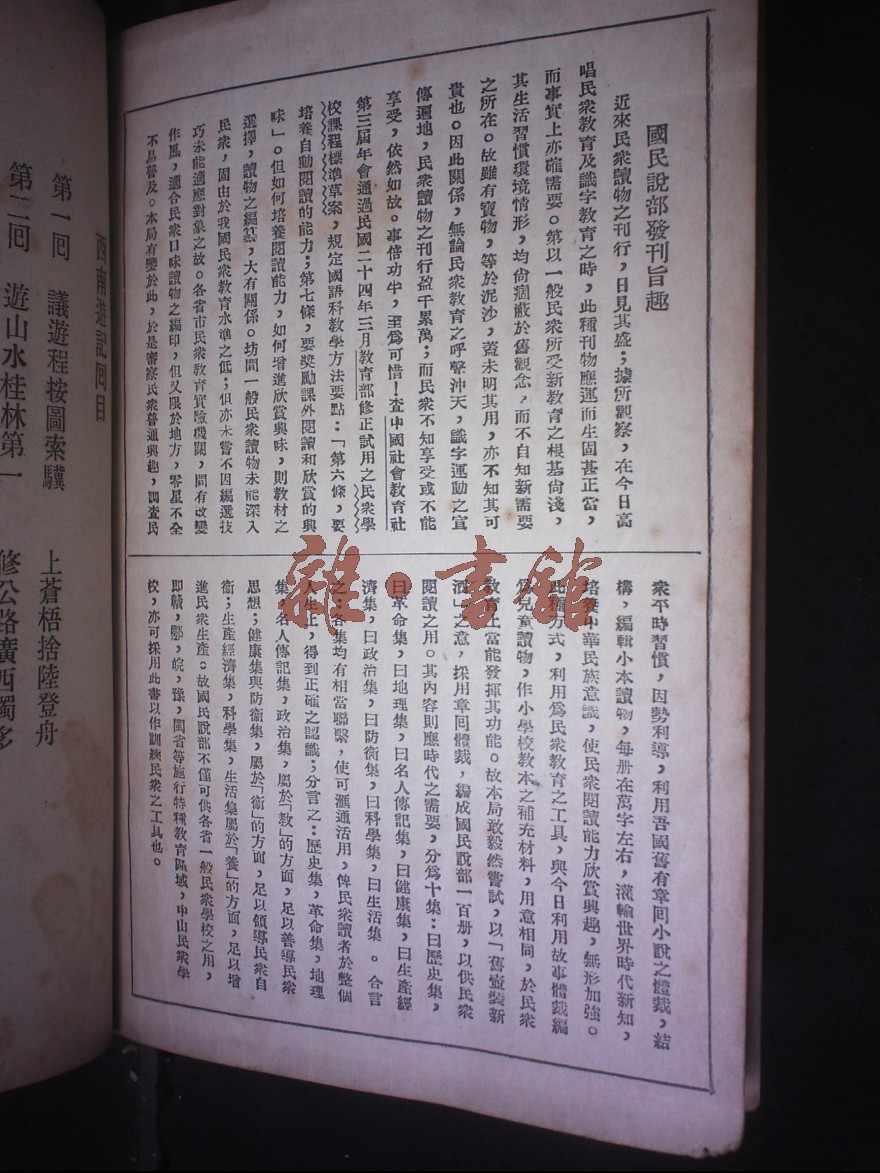 國民說部發刊旨趣
近來民衆讀物之刊行，日見其盛；據所觀察，在今日高
唱民衆教育及識字教育之時，此種刊物應運而生固甚正當，
而事實上亦確需要。第以一般民衆所受新教育之根基尚淺，
其生活習慣環境情形，均尚痼蔽於舊觀念，而不自知新需要
之所在。故雖有寶物，等於泥沙，蓋未明其用，亦不知其可
貴也。因此關係，無論民衆教育之呼聲沖天，識字運動之宣
傳遍地，民衆讀物之刊行盈千累萬；而民衆不知享受或不能
享受，依然如故。事倍功半，至爲可惜！查中國社會教育社
第三屆年會通過民國二十四年三月教育部修正試用之民衆學
校課程標準草案，規定國語科教學方法要點：「第六條，要
培養自動閱讀的能力；第七條，要獎勵課外閱讀和欣賞的興
味」。但如何培養閱讀能力，如何增進欣賞興味，則教材之
選擇，讀物之編纂，大有關係。坊間一般民衆讀物未能深入
民衆，固由於我國民衆教育水準之低；但亦未嘗不因編選技
巧未能適應對象之故。各省市民衆教育實驗機關，間有改變
作風，適合民衆口味讀物之編印，但又限於地方，零星不全
不易普及。本局有鑒於此，於是審察民衆普通興趣，調查民
衆平時習慣，因勢利導，利用吾國舊有章回小說之體裁，結
構，編輯小本讀物，每册在萬字左右，灌輸世界時代新知，
培養中華民族意識，使民衆閱讀能力欣賞興趣，無形加強。
此種方式，利用爲民衆教育之工具，與今日利用故事體裁編
爲兒童讀物，作小學校教本之補充材料，用意相同，於民衆
教育上當能發揮其功能。故本局敢毅然嘗試，以「舊壺裝新
酒」之意，採用章回體裁，編成國民說部一百册，以供民衆
閱讀之用。其內容則應時代之需要，分爲十集：曰歷史集，
曰革命集，曰地理集，曰名人傳記集，曰健康集，曰生產經
濟集，曰政治集，曰防衛集，曰科學集，曰生活集。合言
之：各集均有相當聯繫，使可滙通活用，俾民衆讀者於整個
人生上，得到正確之認識；分言之：歷史集，革命集，地理
集，名人傳記集，政治集，屬於「教」的方面，足以善導民衆
思想；健康集與防衛集，屬於「衛」的方面，足以領導民衆自
衛；生產經濟集，科學集，生活集屬於「養」的方面，足以增
進民衆生產。故國民說部不僅可供各省一般民衆學校之用，
即贛，鄂，皖，豫，閩省等施行特種教育區域，中山民衆學
校，亦可採用此書以作訓練民衆之工具也。
西南遊記回目
第一回 議遊程按圖索驥 上蒼梧捨陸登舟
第二回 遊山水桂林第一 修公路廣西獨多
雜·書館